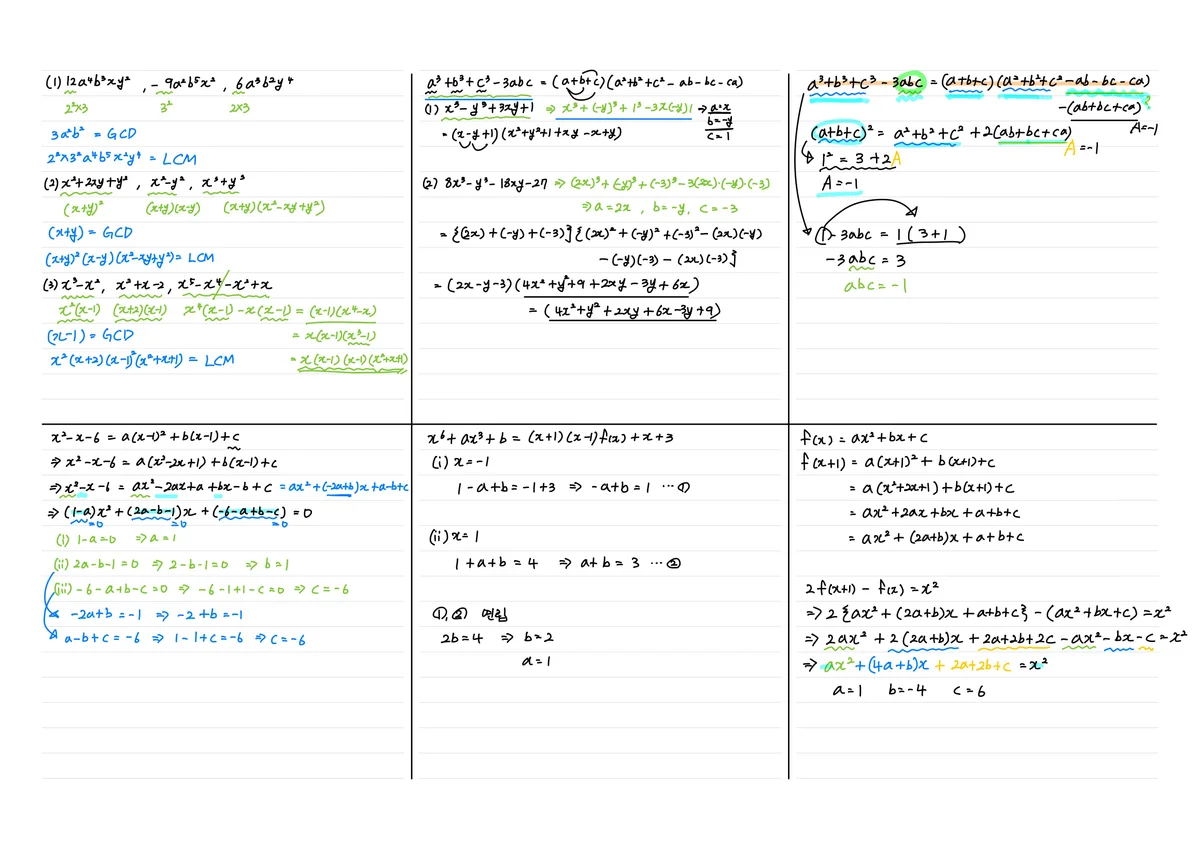 (1) 12a⁴b³xy² , -9a²b⁵x² , 6a³b²y⁴
2²×3 3² 2×3
3a²b² = GCD
2²×3²a⁴b⁵x²y⁴ = LCM
(2) x²+2xy+y² , x²-y² , x³+y³
(x+y)² (x+y)(x-y) (x+y)(x²-xy+y²)
(x+y) = GCD
(x+y)²(x-y)(x²-xy+y²) = LCM
(3) x³-x², x²+x-2, x⁵-x⁴-x²+x
x²(x-1) (x+2)(x-1) x⁴(x-1)-x(x-1) = (x-1)(x⁴-x)
(x-1) = GCD = x(x-1)(x³-1)
x²(x+2)(x-1)²(x²+x+1) = LCM = x(x-1)(x-1)(x²+x+1)
a³+b³+c³-3abc = (a+b+c)(a²+b²+c²-ab-bc-ca)
(1) x³-y³+3xy+1 ⇒ x³+(-y)³+1³-3x(-y)1 ⇒ a=x
b=-y
= (x-y+1)(x²+y²+1+xy-x+y) c=1
(2) 8x³-y³-18xy-27 ⇒ (2x)³+(-y)³+(-3)³-3(2x)·(-y)·(-3)
⇒ a=2x , b=-y, c=-3
= {(2x)+(-y)+(-3)}{(2x)²+(-y)²+(-3)²-(2x)(-y)
-(-y)(-3)-(2x)(-3)}
= (2x-y-3)(4x²+y²+9+2xy-3y+6x)
= (4x²+y²+2xy+6x-3y+9)
a³+b³+c³-3abc = (a+b+c)(a²+b²+c²-ab-bc-ca)
-(ab+bc+ca)
A=-1
(a+b+c)² = a²+b²+c²+2(ab+bc+ca)
A=-1
1² = 3+2A
A=-1
1-3abc = 1(3+1)
-3abc = 3
abc = -1
x²-x-6 = a(x-1)²+b(x-1)+c
⇒ x²-x-6 = a(x²-2x+1)+b(x-1)+c
⇒ x²-x-6 = ax²-2ax+a+bx-b+c = ax²+(-2a+b)x+a-b+c
⇒ (1-a)x²+(2a-b-1)x+(-6-a+b-c) = 0
=0 =0 =0
(i) 1-a=0 ⇒ a=1
(ii) 2a-b-1=0 ⇒ 2-b-1=0 ⇒ b=1
(iii) -6-a+b-c=0 ⇒ -6-1+1-c=0 ⇒ c=-6
-2a+b=-1 ⇒ -2+b=-1
a-b+c=-6 ⇒ 1-1+c=-6 ⇒ c=-6
x⁶+ax³+b = (x+1)(x-1)f(x)+x+3
(i) x=-1
1-a+b=-1+3 ⇒ -a+b=1 ⋯①
(ii) x=1
1+a+b=4 ⇒ a+b=3 ⋯②
①,② 연립
2b=4 ⇒ b=2
a=1
f(x) = ax²+bx+c
f(x+1) = a(x+1)²+b(x+1)+c
= a(x²+2x+1)+b(x+1)+c
= ax²+2ax+bx+a+b+c
= ax²+(2a+b)x+a+b+c
2f(x+1)-f(x)=x²
⇒ 2{ax²+(2a+b)x+a+b+c}-(ax²+bx+c)=x²
⇒ 2ax²+2(2a+b)x+2a+2b+2c-ax²-bx-c=x²
⇒ ax²+(4a+b)x+2a+2b+c=x²
a=1 b=-4 c=6